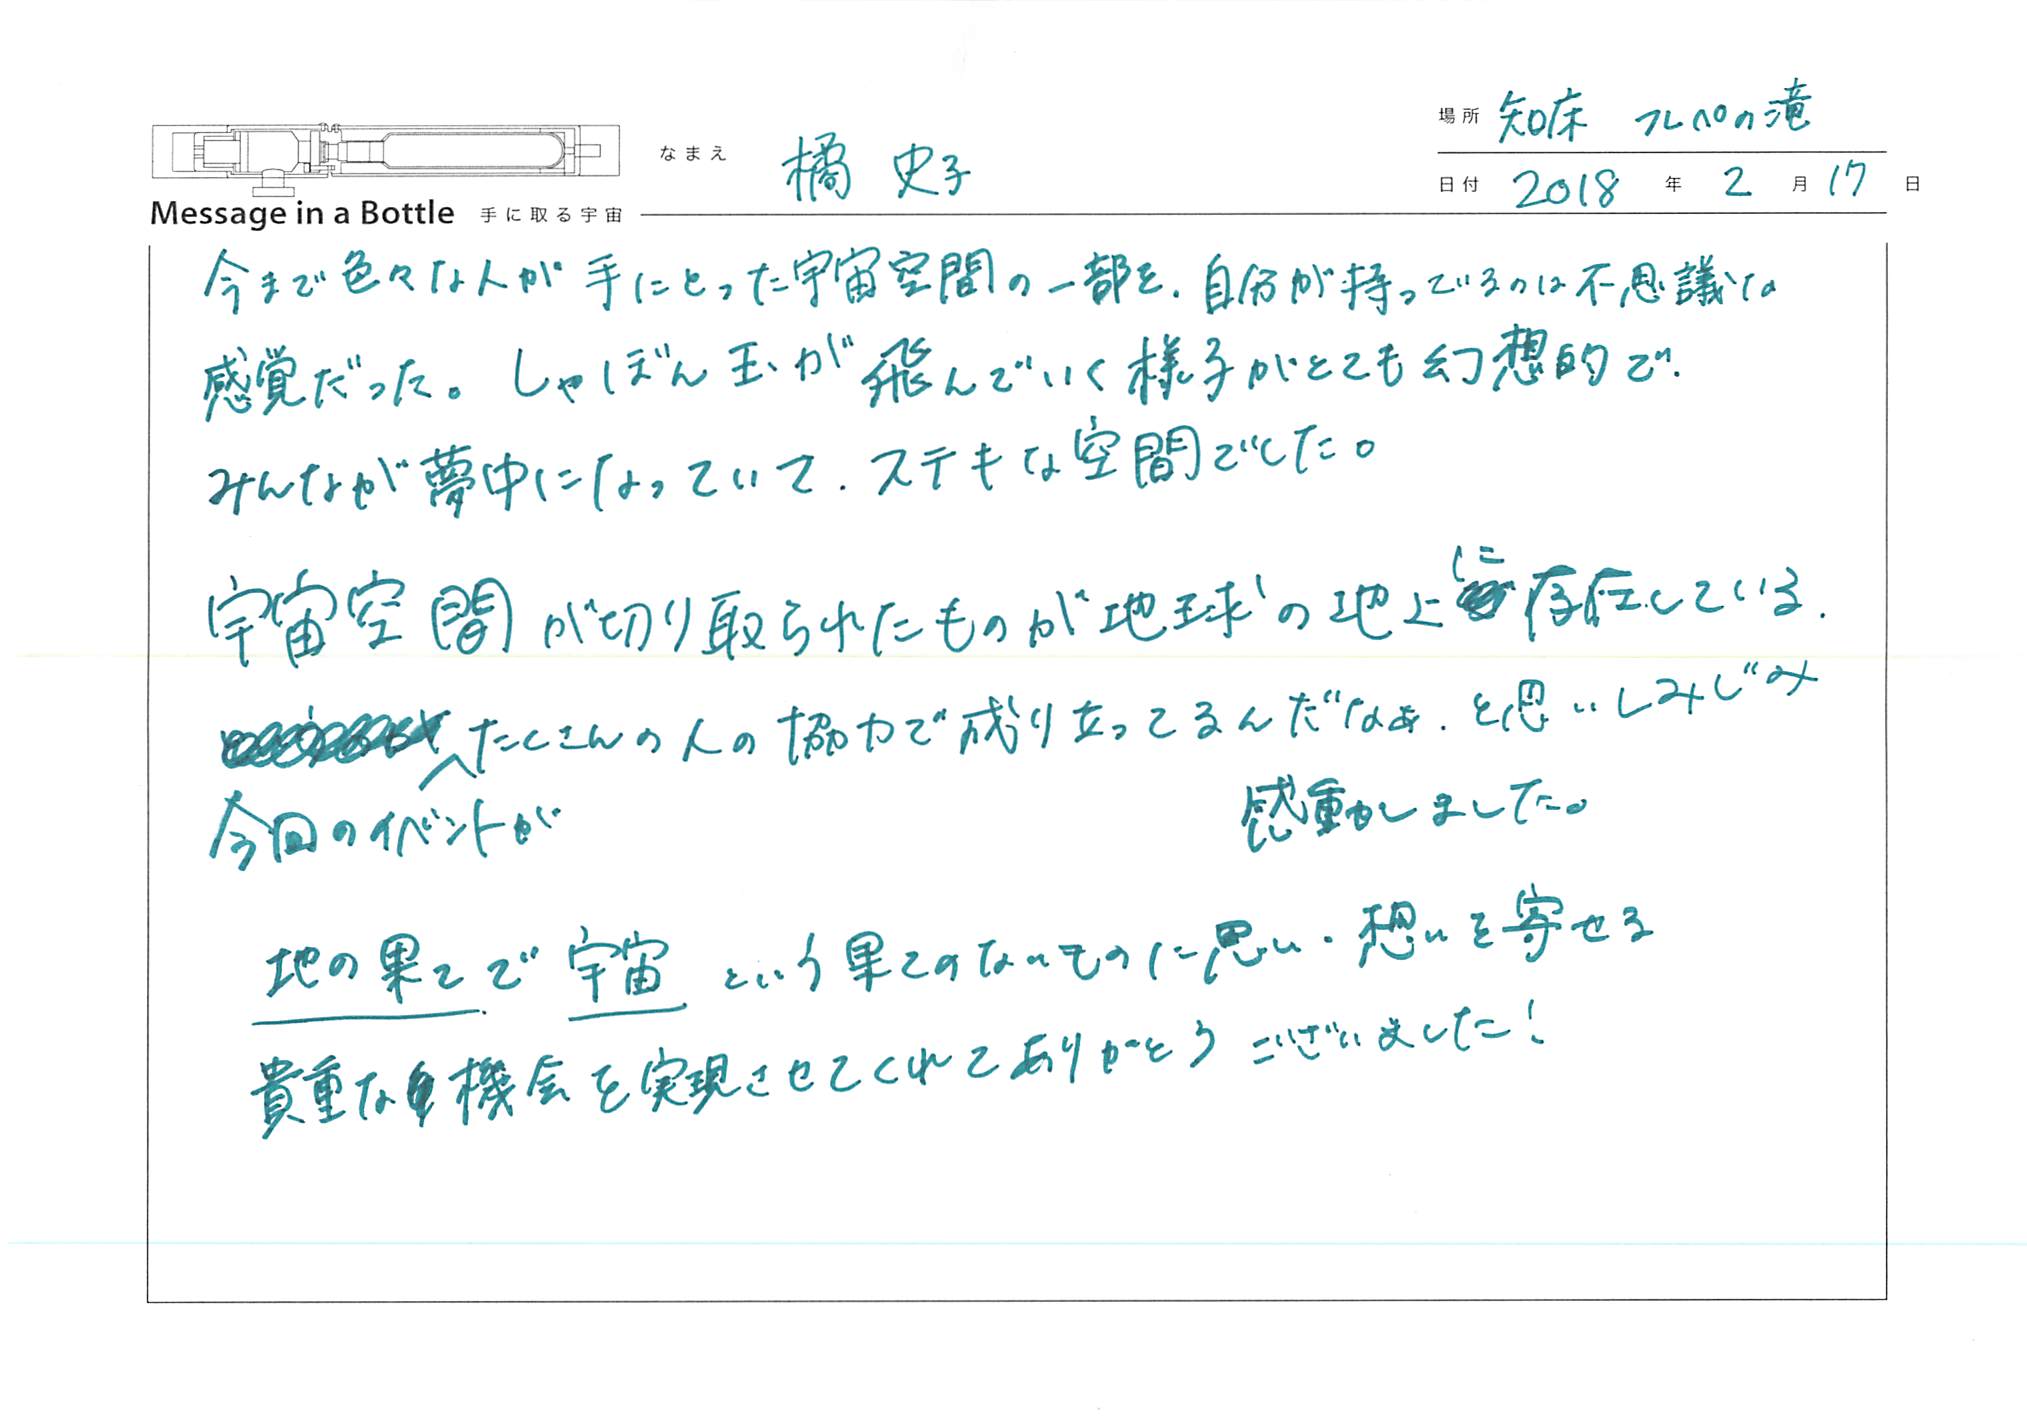 場所 知床 フレペの滝
なまえ 橘 史子
日付 2018 年 2 月 17 日
Message in a Bottle 手に取る宇宙
今まで色々な人が手にとった宇宙空間の一部を、自分が持っているのは不思議な
感覚だった。しゃぼん玉が飛んでいく様子がとても幻想的で、
みんなが夢中になっていて、ステキな空間でした。
宇宙空間が切り取られたものが地球の地上に存在している、
今回のイベントがたくさんの人の協力で成り立ってるんだなぁ、と思いしみじみ
感動しました。
地の果てで宇宙という果てのないものに思い・想いを寄せる
貴重な機会を実現させてくれてありがとうございました!